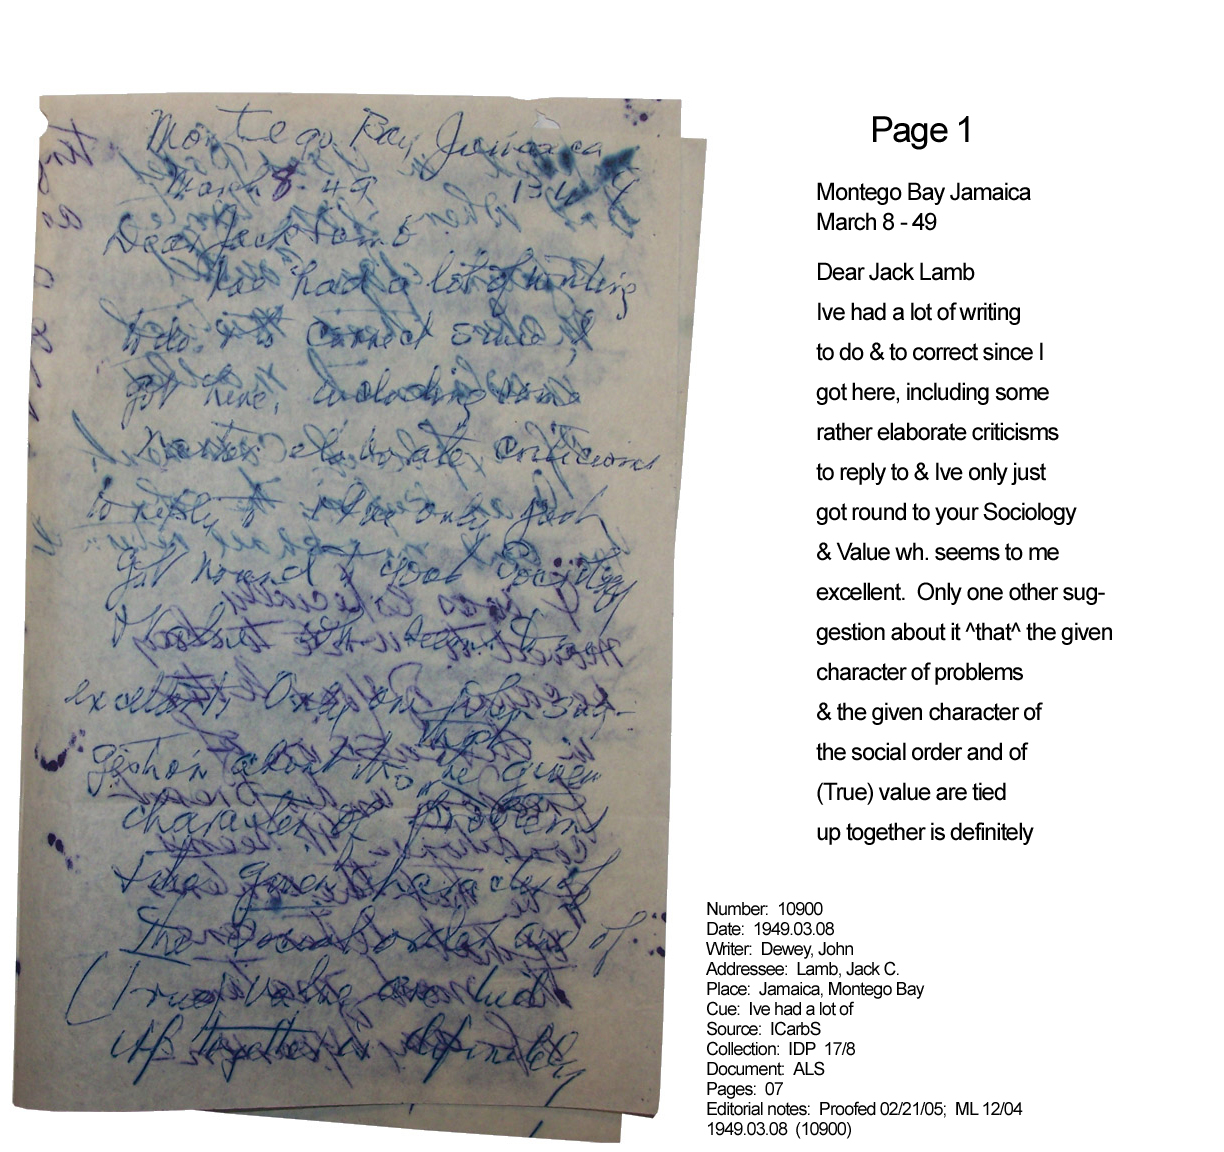 Montego Bay, Jamaica
March 8 - 49
Dear Jack Lamb
Ive had a lot of writing
to do & to correct since I
got here, including some
rather elaborate criticisms
to reply to & Ive only just
got round to your Sociology
& Value wh. seems to me
excellent. Only one other sug-
that
gestion about it the given
character of problems
& the given character of
the social order and of
(True) value are tied
up together is definitely
Page 1
Montego Bay Jamaica
March 8 - 49
Dear Jack Lamb
Ive had a lot of writing
to do & to correct since I
got here, including some
rather elaborate criticisms
to reply to & Ive only just
got round to your Sociology
& Value wh. seems to me
excellent.  Only one other sug-
gestion about it ^that^ the given
character of problems
& the given character of
the social order and of
(True) value are tied
up together is definitely
Number:  10900
Date:  1949.03.08
Writer:  Dewey, John
Addressee:  Lamb, Jack C.
Place:  Jamaica, Montego Bay
Cue:  Ive had a lot of
Source:  ICarbS
Collection:  IDP  17/8
Document:  ALS
Pages:  07
Editorial notes:  Proofed 02/21/05;  ML 12/04
1949.03.08  (10900)